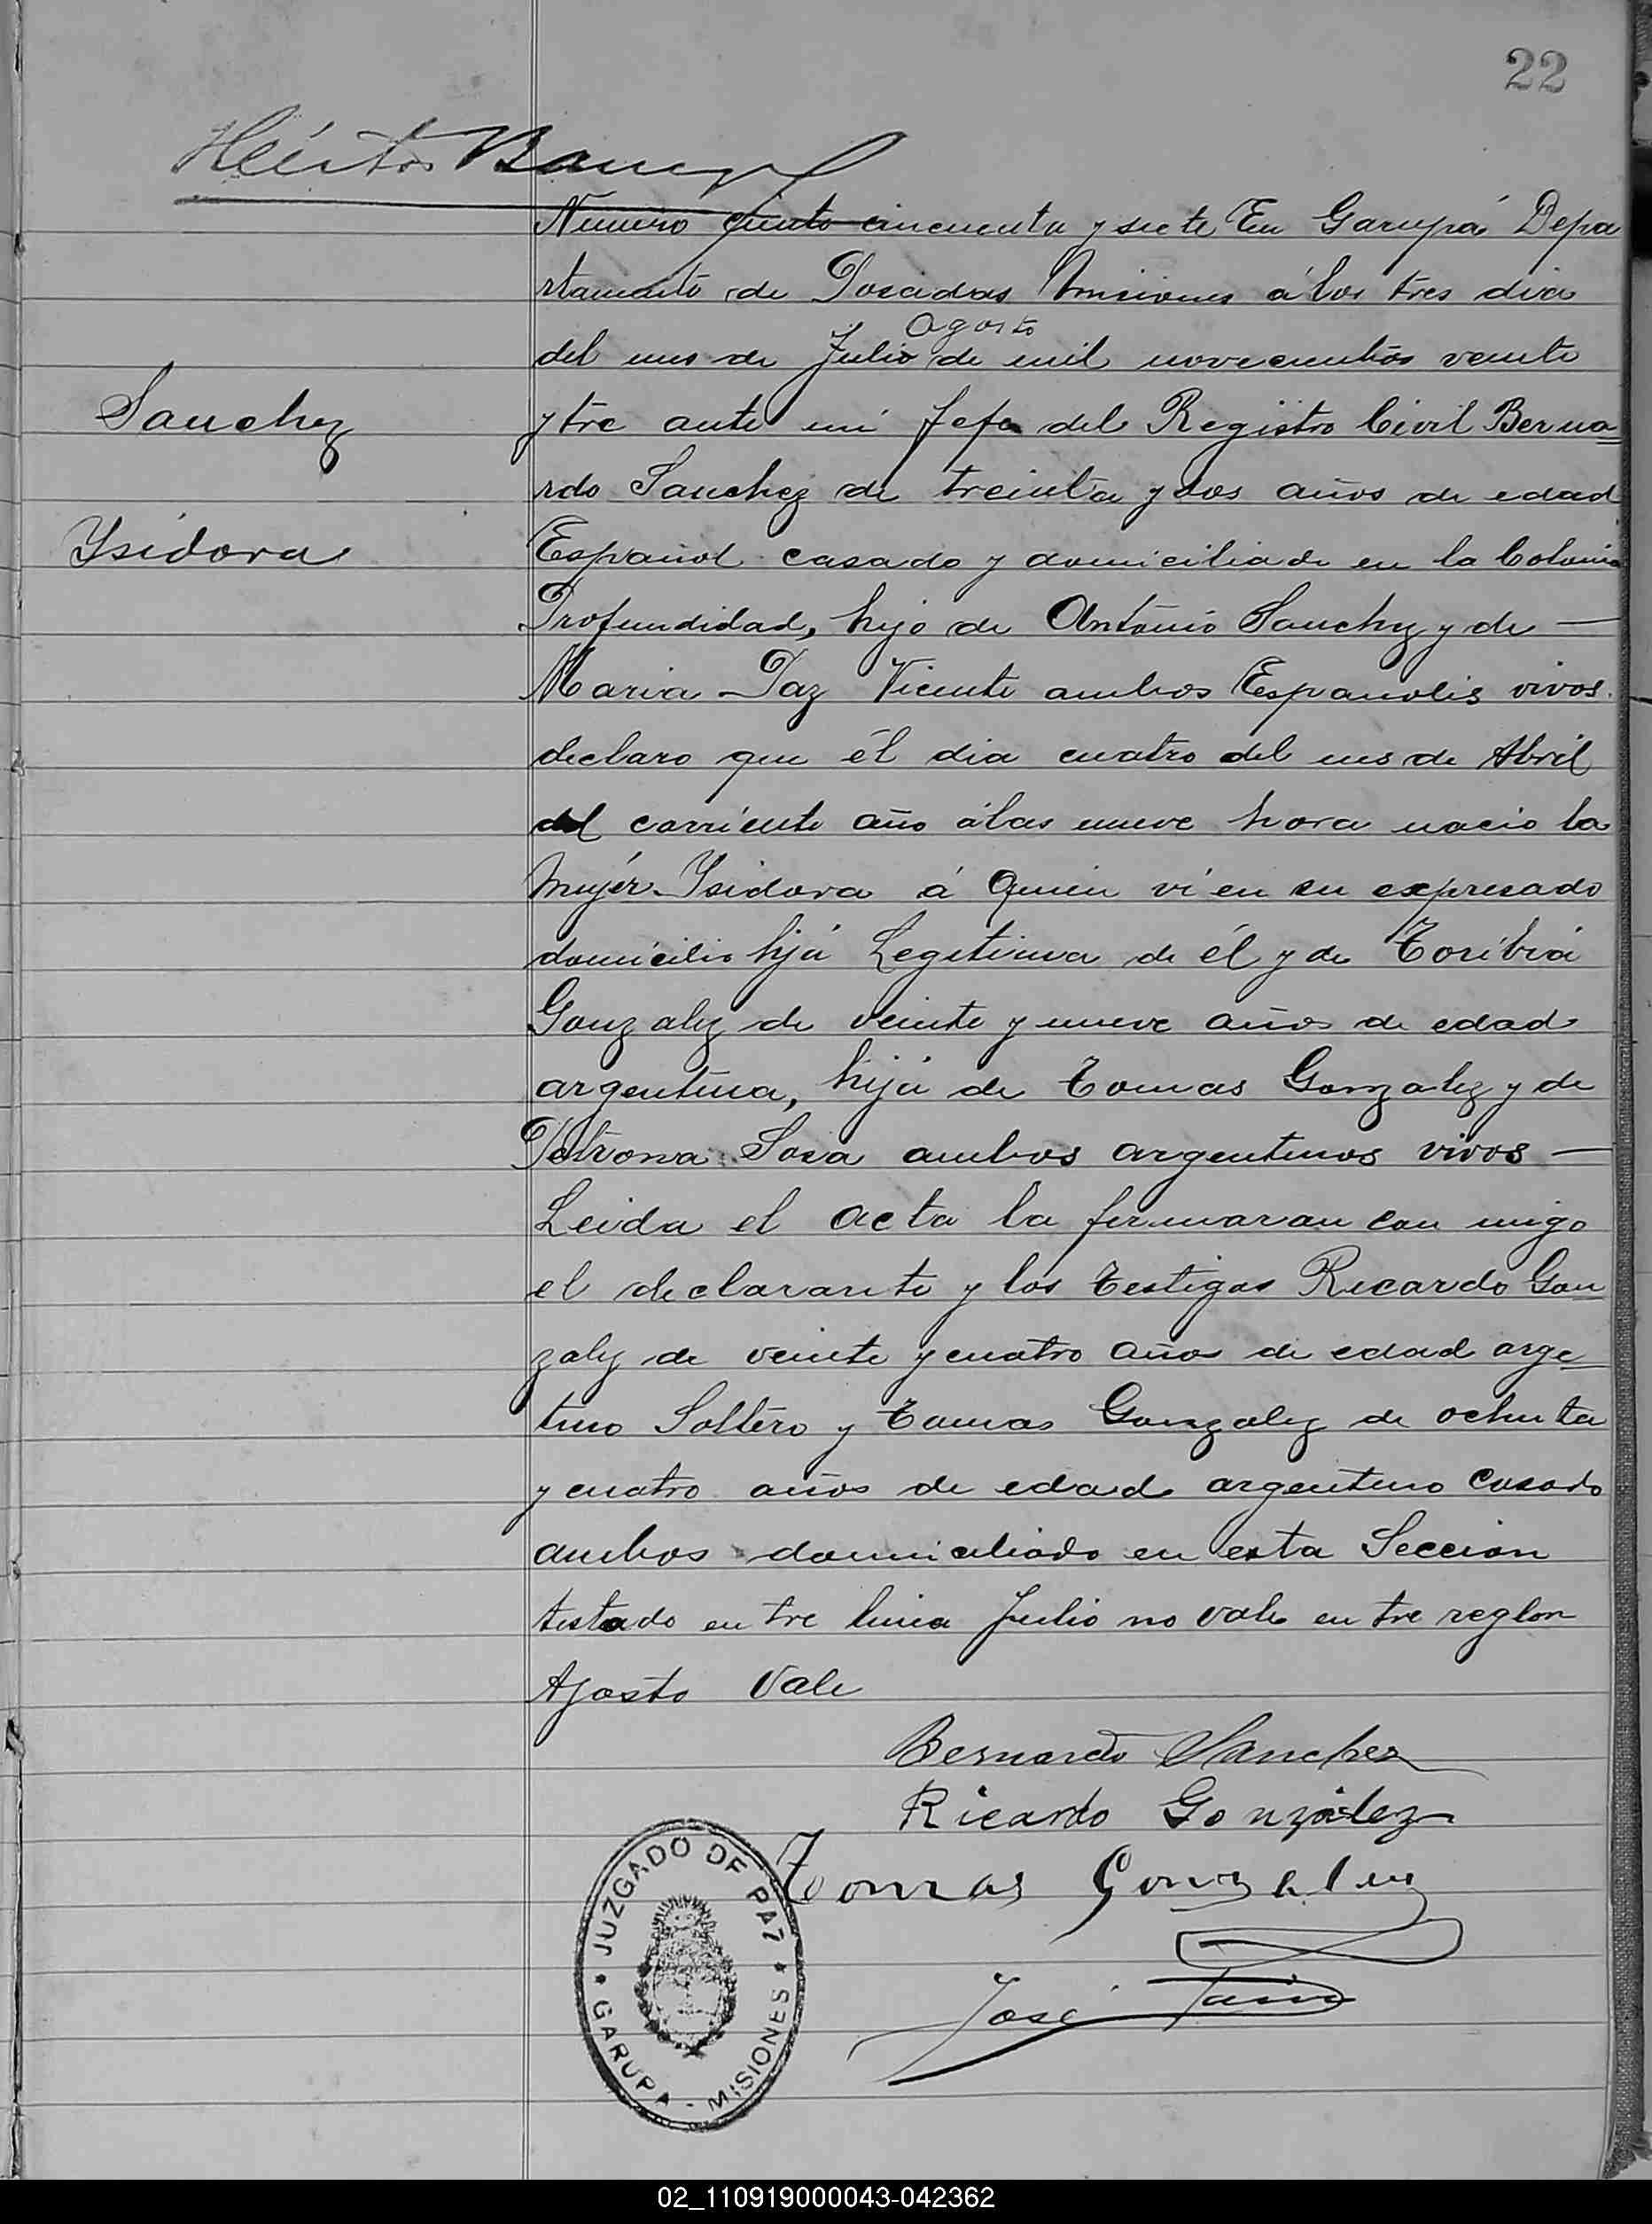 22
Héctor
Numero ciento cincuenta y siete En Garupá Depa
rtamento de Posadas Misiones á los tres dia
Agosto
del mes de Julio de mil novecientos veinte
y tre ante mi Jefe del Registro Civil Berna=
rdo Sanchez de treinta y dos años de edad
Sanchez
Español casado y domiciliado en la Colonia
Ysidora
Profundidad, hijo de Antonio Sanchez y de —
Maria Paz Vicente ambos Españolis vivos.
declaro que él dia cuatro del mes de Abril
del corriente año á las nueve hora nacio la
Mujér Ysidora á Quien vi en su expresado
domicilio hija Legitima de él y de Toribia
Gonzalez de veinte y nueve años de edad
argentina, hija de Tomas Gonzalez y de
Petrona Sosa ambos argentinos vivos —
Leida el acta la firmaran con migo
el declarante y los testigos Ricardo Gon
zalez de veinte y cuatro años de edad arge=
tino Soltero y Tomas Gonzalez de ochenta
y cuatro años de edad argentino Casado
ambos domiciliado en esta Seccion
testado en tre linia Julio no vale en tre reglon
Agosto Vale
Bernardo Sanchez
Ricardo González
Tomas Gonzalez
José
JUZGADO DE PAZ
GARUPA - MISIONES
02_110919000043-042362